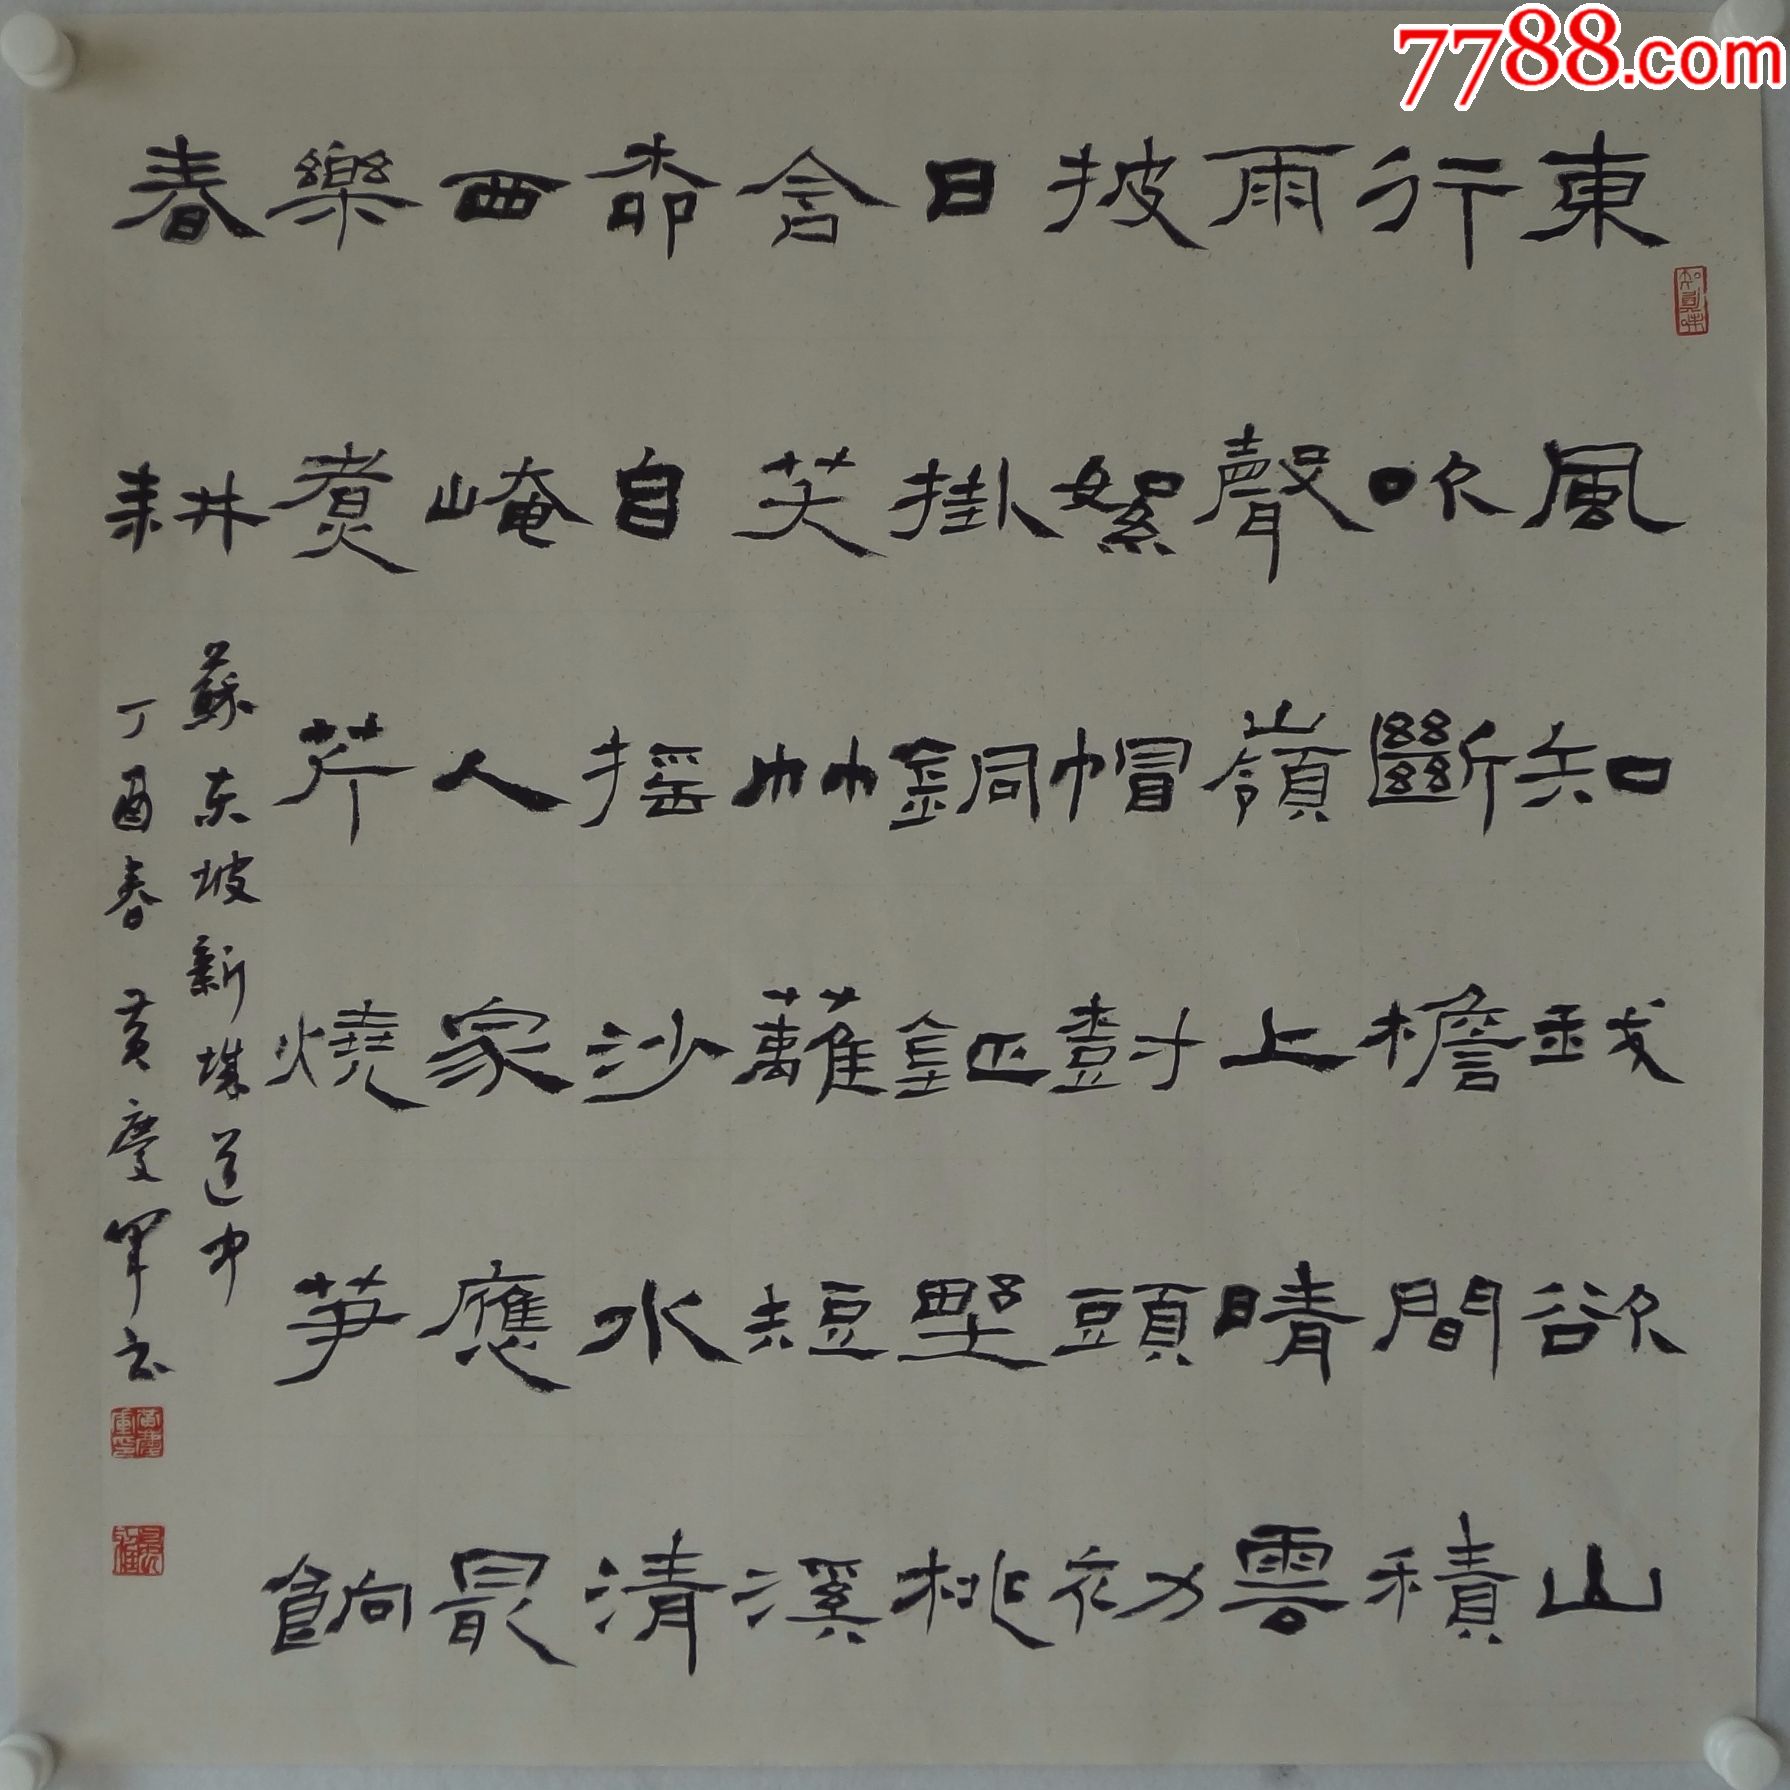 東風知我欲山
行吹斷檐間積
雨聲嶺上晴雲
披絮帽樹頭初
日掛銅鉦野桃
含笑竹籬短溪
柳自搖沙水清
西崦人家應最
樂煮芹燒笋餉
春耕
蘇東坡新城道中
丁酉春黃慶軍書
7788.com